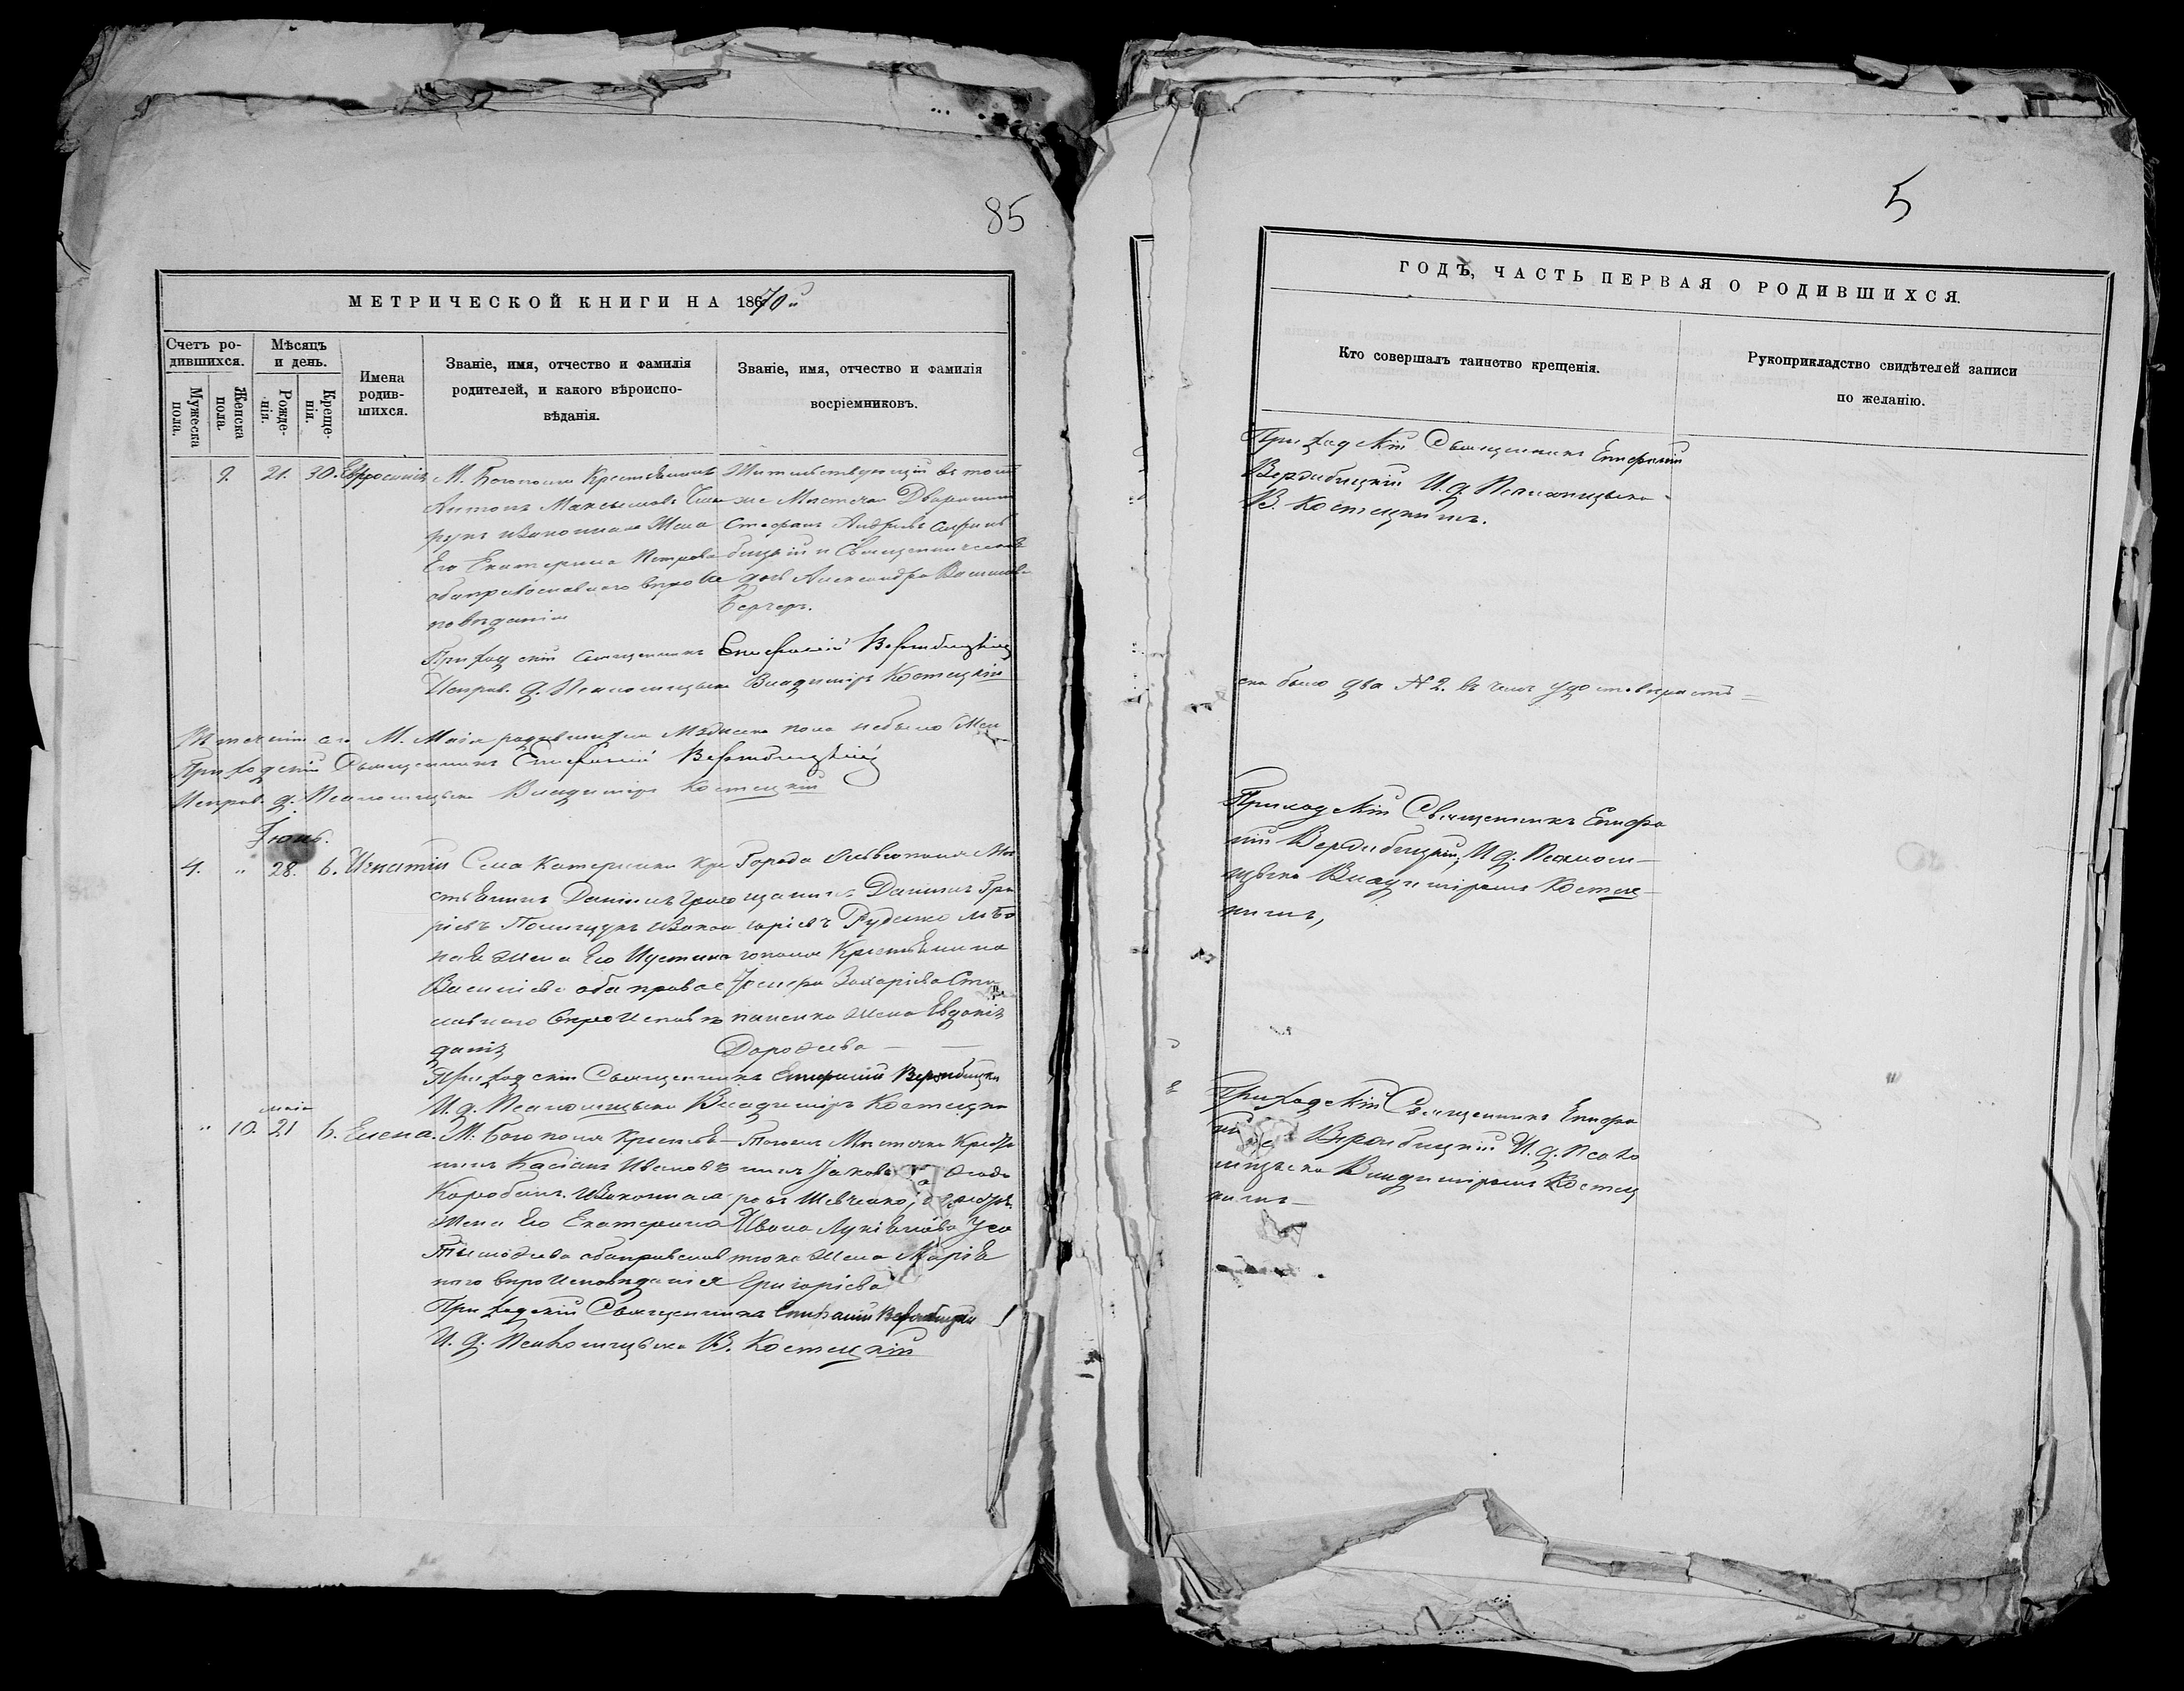 85
МЕТРИЧЕСКОЙ КНИГИ НА 1870й
Счетъ ро-
дившихся.
Мужеска
пола.
Женска
пола.
Мѣсяцъ
и день.
Рожде-
нія.
Креще-
нія.
Имена
родив-
шихся.
Званіе, имя, отчество и фамилія
родителей, и какого вѣроиспо-
вѣданія.
Званіе, имя, отчество и фамилія
воспріемниковъ.
9. 21. 30. Евфросинія
М. Богополя Крестьянинъ
Антонъ Максимовъ
и законная Жена
Его Екатерина Петрова
оба православнаго вѣроис
повѣданія
Жительствующій въ томъ
же Мѣстечкѣ Дворянинъ
Стефанъ Андреевъ
и Священническая
дочь Александра Василіева
Бергеръ.
Приходскій Священникъ Епифаній Вербицкій
Исправ. д. Псаломщика Владиміръ Костецкій
Въ теченіи сего М. Маія родившихся Мужеска пола небыло Жен
Приходскій Священникъ Епифаній Вербицкій
Исправ. д. Псаломщика Владиміръ Костецкій
Іюнь.
4. " 28. 6. Игнатій
Села Катеринки Кре
стьянинъ Даніилъ Григо
ріевъ Полищукъ и Закон
ная Жена Его Иустина
Василіева оба правос
лавнаго Вѣроисповѣ
данія
Города Ольвіополя Мѣ
щанинъ Даніилъ Гри
горіевъ Руденко и Бо
гополя Крестьянина
Захаріева
жена Евдокія
Дорофеева
Приходскій Священникъ Епифаній Вербицкій
И. д. Псаломщика Владиміръ Костецкій
" 10. маія 21 6. Елена.
М. Богополя Крестья-
нинъ Касіанъ Ивановъ
Коробанъ и Законная
жена Его Екатерина
Тимофеева оба православ
наго вѣроисповѣданія
Тогожъ Мѣстечка Крестья
нинъ Іаковъ Федо
ровъ Шевченко, и
Ивана Лукіанова
жена Марія
Григоріева
Приходскій Священникъ Епифаній Вербицкій
И. д. Псаломщика В. Костецкій
5
ГОДЪ, ЧАСТЬ ПЕРВАЯ О РОДИВШИХСЯ.
Кто совершалъ таинство крещенія.
Рукоприкладство свидѣтелей записи
по желанію.
Приходскій Священникъ Епифаній
Вербицкій И. д. Псаломщика
В. Костецкимъ.
ска было два № 2. въ чемъ удостовѣряетъ
Приходскій Священникъ Епифа
ній Вербицкій, И. д. Псаломщ-
щика Владиміромъ Костец-
кимъ,
Приходскій Священникъ Епифа
Вербицкій И. д. Псало
мщика Владиміромъ Костец
кимъ